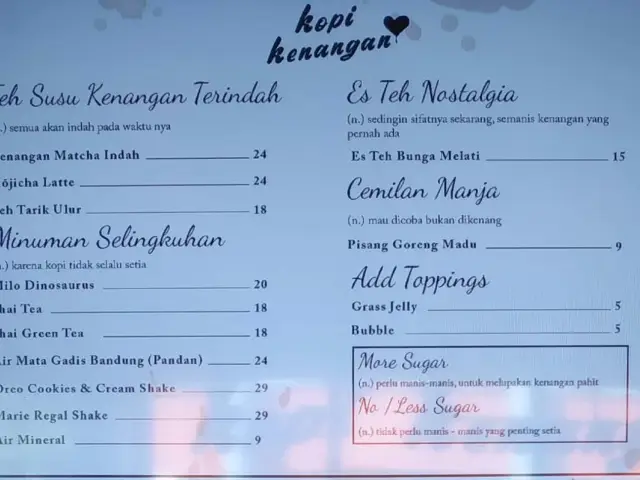 kopi
kenangan
eh Susu Kenangan Terindah
.) semua akan indah pada waktu nya
enangan Matcha Indah 24
ojicha Latte 24
eh Tarik Ulur 18
Minuman Selingkuhan
n.) karena kopi tidak selalu setia
Milo Dinosaurus 20
hai Tea 18
hai Green Tea 18
Air Mata Gadis Bandung (Pandan) 24
Oreo Cookies & Cream Shake 29
Marie Regal Shake 29
Air Mineral 9
Es Teh Nostalgia
(n.) sedingin sifatnya sekarang, semanis kenangan yang
pernah ada
Es Teh Bunga Melati 15
Cemilan Manja
(n.) mau dicoba bukan dikenang
Pisang Goreng Madu 9
Add Toppings
Grass Jelly 5
Bubble 5
More Sugar
(n.) perlu manis-manis, untuk melupakan kenangan pahit
No / Less Sugar
(n.) tidak perlu manis - manis yang penting setia